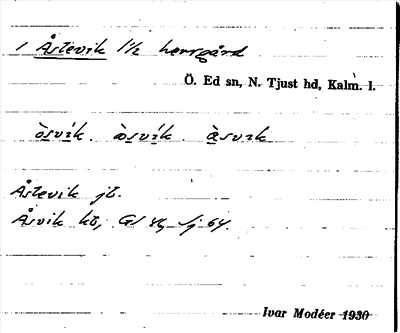 1 Åstevik 1 1/2 herrgård
Ö. Ed sn, N. Tjust hd, Kalm. l.
òsvík. òsvík. àsvik
Åstevik jb.
Åsvik kb, GS
Ivar Modéer 1930